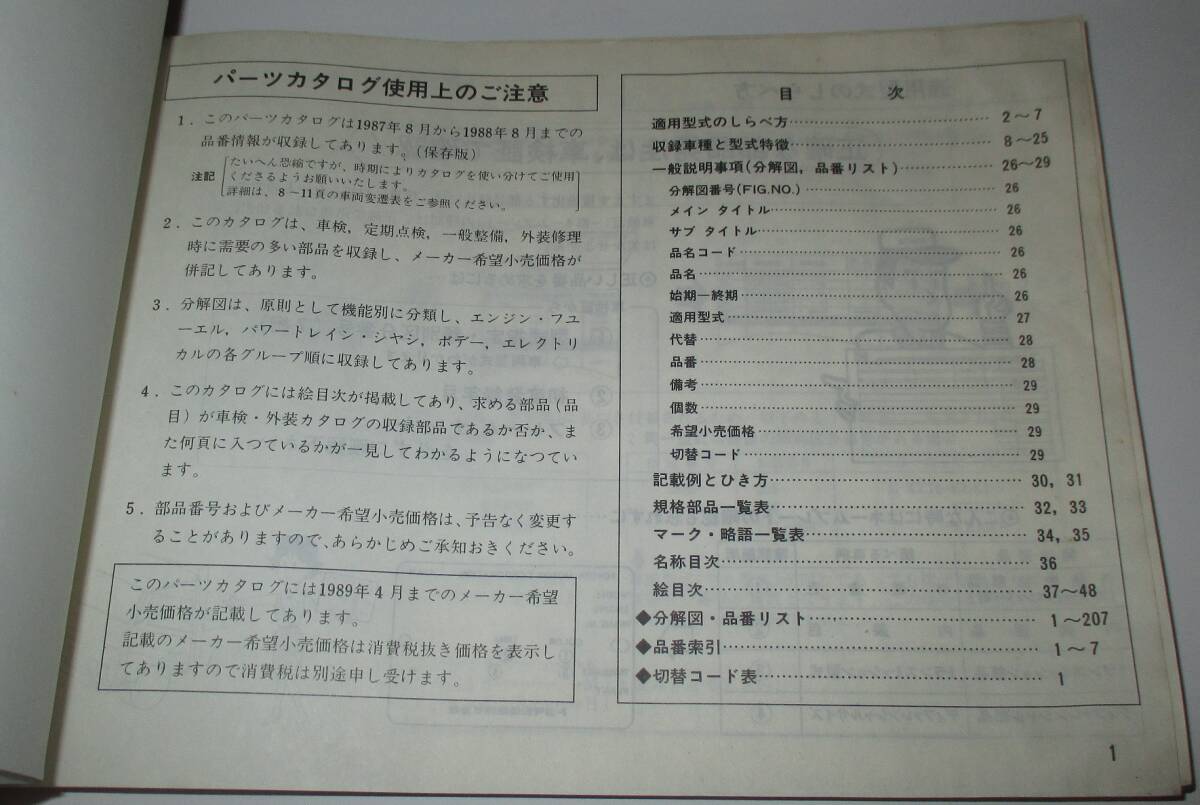 パーツカタログ使用上のご注意
1．このパーツカタログは1987年8月から1988年8月までの
品番情報が収録してあります。(保存版)
注記
たいへん恐縮ですが、時期によりカタログを使い分けてご使用
くださるようお願いいたします。
詳細は、8～11頁の車両変遷表をご参照ください。
2．このカタログは、車検，定期点検，一般整備，外装修理
時に需要の多い部品を収録し、メーカー希望小売価格が
併記してあります。
3．分解図は、原則として機能別に分類し、エンジン・フユ
ーエル，パワートレイン・シヤシ，ボデー，エレクトリ
カルの各グループ順に収録してあります。
4．このカタログには絵目次が掲載してあり、求める部品（品
目）が車検・外装カタログの収録部品であるか否か、ま
た何頁に入つているかが一見してわかるようになつてい
ます。
5．部品番号およびメーカー希望小売価格は、予告なく変更す
ることがありますので、あらかじめご承知おきください。
このパーツカタログには1989年4月までのメーカー希望
小売価格が記載してあります。
記載のメーカー希望小売価格は消費税抜き価格を表示し
てありますので消費税は別途申し受けます。
目　次
適用型式のしらべ方……………………………2～7
収録車種と型式特徴……………………………8～25
一般説明事項(分解図，品番リスト)……………26～29
分解図番号(FIG.NO.)……………………………26
メイン タイトル……………………………26
サブ タイトル……………………………26
品名コード……………………………26
品名……………………………26
始期―終期……………………………26
適用型式……………………………27
代替……………………………28
品番……………………………28
備考……………………………29
個数……………………………29
希望小売価格……………………………29
切替コード……………………………29
記載例とひき方……………………………30，31
規格部品一覧表……………………………32，33
マーク・略語一覧表……………………………34，35
名称目次……………………………36
絵目次……………………………37～48
◆分解図・品番リスト……………………………1～207
◆品番索引……………………………1～7
◆切替コード表……………………………1
1